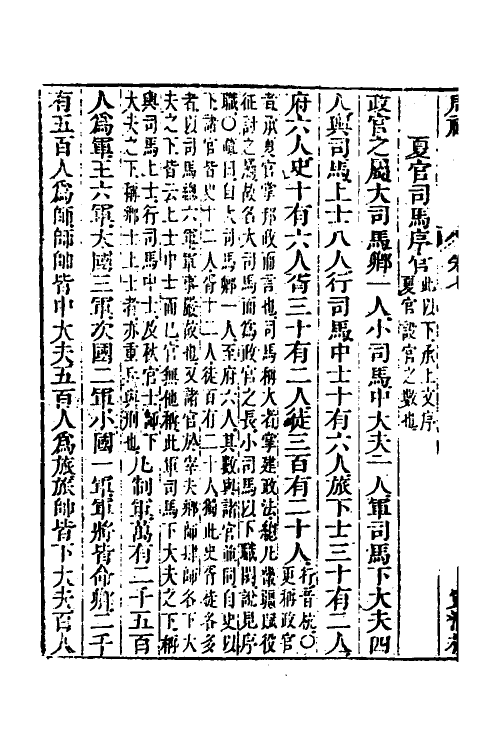 夏官司馬序官 此以下承上文序夏官設官之數也
政官之屬大司馬卿一人小司馬中大夫二人軍司馬下大夫四
人輿司馬上士八人行司馬中士十有六人旅下士三十有二人
府六人史十有六人胥三十有二人徒三百有二十人 行音杭〇更稱政官
者承夏官掌邦政而言也司馬稱大者掌建政法總凡畿疆賦役
征討之屬故名大司馬而為政官之長小司馬以下職闕說見序
職〇 自大司馬卿一人至府六人其數與諸官並同自史以
上諸官皆史十二人胥十二人徒百有二十人獨此史胥徒各多
者以司馬總六軍軍事嚴故也又諸官於宰夫鄉師肆師各下大
夫之下皆云上士中士而已官無他稱此軍司馬下大夫之下稱
輿司馬上士行司馬中士及秋官士師下
大夫之下稱鄉士上士者亦重兵與刑也 凡制軍萬有二千五百
人為軍王六軍大國三軍次國二軍小國一軍軍將皆命卿二千
有五百人為師師帥皆中大夫五百人為旅旅帥皆下大夫百人